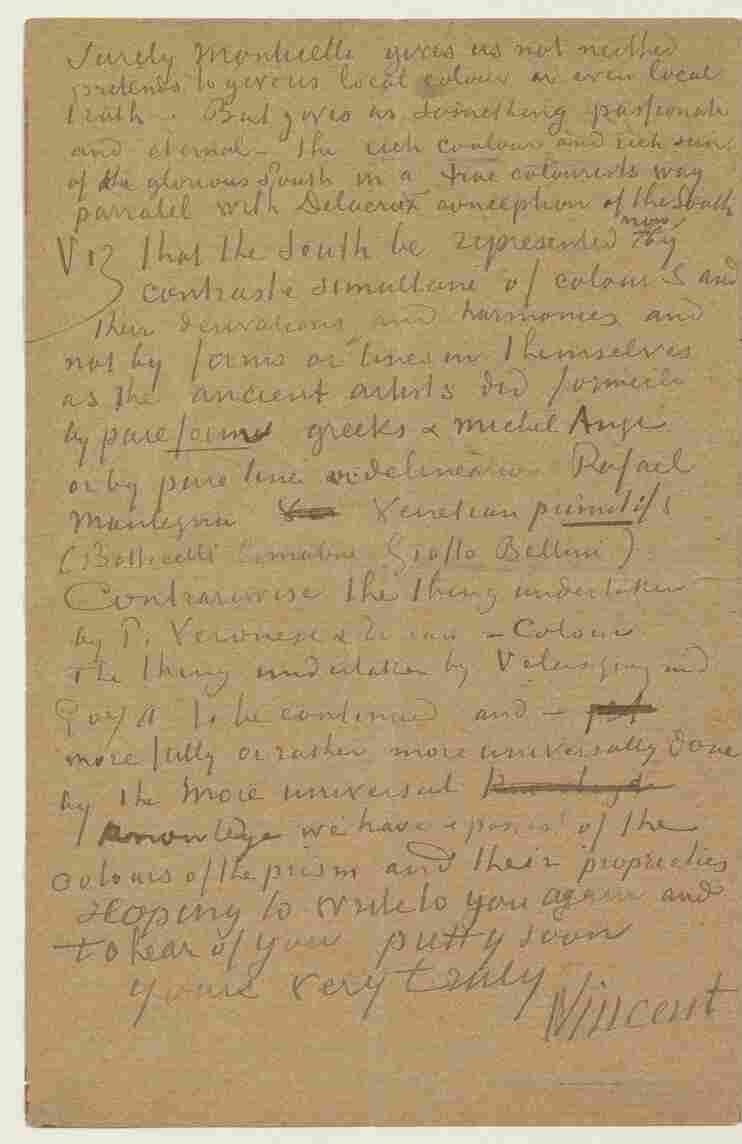 Surely Monticelli gives us not neither
pretends to give us local colour or even local
truth. But gives us something passionate
and eternal – the rich coulour and rich sun
of the glorious South in a true colourists way
parralel with Delacroix conception of the South
Viz that the South be represented now by
contraste simultané of colours and
their derivations and harmonies and
not by forms or lines in themselves
as the ancient artists did formerly
by pure form greeks & Michel Ange
or by pure line or delineation Rafael
Mantegna Venetian primitifs
(Botticelli Cimabue Giotto Bellini)
Contrariwise the thing undertaken
by P. Veronese & Titian – Colour.
The thing undertaken by Velasquez and
Goya to be continued and –
more fully or rather more universally done
by the more universal knowledge
knowledge we have & possess of the
colours of the prism and their proprieties
Hoping to write to you again and
to hear of you pretty soon
yours very truly
Vincent